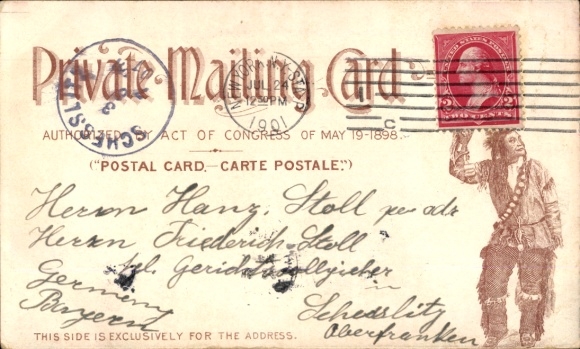 Private Mailing Card
AUTHORIZED BY ACT OF CONGRESS OF MAY 19-1898.
("POSTAL CARD.—CARTE POSTALE.")
NEW YORK
JUL 24
12 30 PM
1901
C
UNITED STATES POSTAGE
2 2
TWO CENTS
SCHESSL
Herrn Hanz. Stoll per adr
Herrn Friederich Stoll
kgl. Gerichtsvollzieher in
Germany
Bayern
Schesslitz
Oberfranken
THIS SIDE IS EXCLUSIVELY FOR THE ADDRESS.